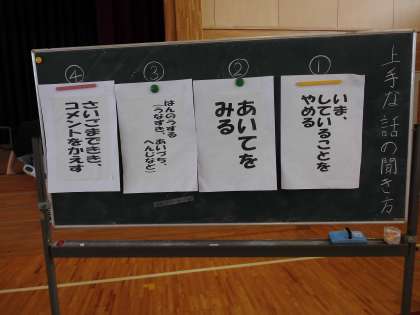 上手な話の聞き方
①
いま、
していることを
やめる
②
あいてを
みる
③
はんのうする
（うなずき、あいづち、
へんじなど）
④
さいごまできき、
コメントをかえす